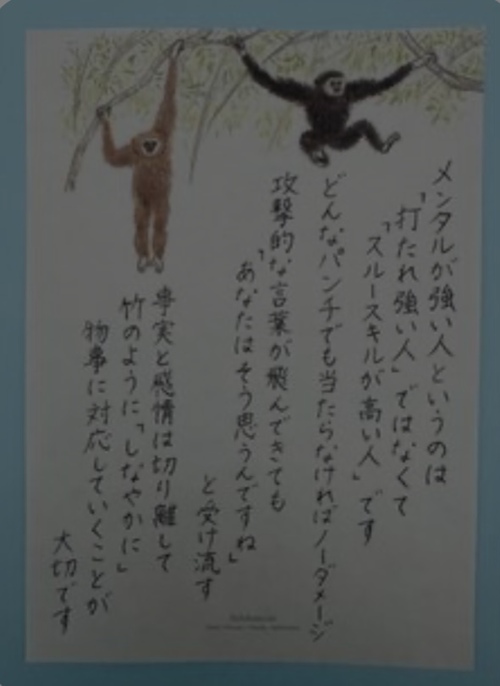 メンタルが強い人というのは
「打たれ強い人」ではなくて
「スルースキルが高い人」です
どんなパンチでも当たらなければノーダメージ
攻撃的な言葉が飛んできても
「あなたはそう思うんですね」
と受け流す
事実と感情は切り離して
竹のように「しなやかに」
物事に対応していくことが
大切です